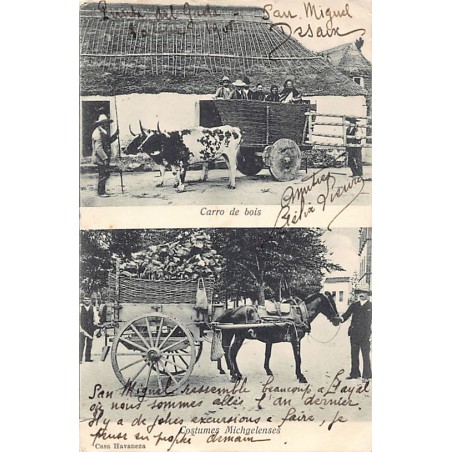 Ponta del Gada San Miguel
1906 Desaix
Carro de bois
amitiés
Félix Pierre
San Miguel ressemble beaucoup à Fayal
où nous sommes allés l'an dernier
Il y a de jolies excursions à faire, je
pense en profiter demain
Costumes Michaelenses
Casa Havaneza